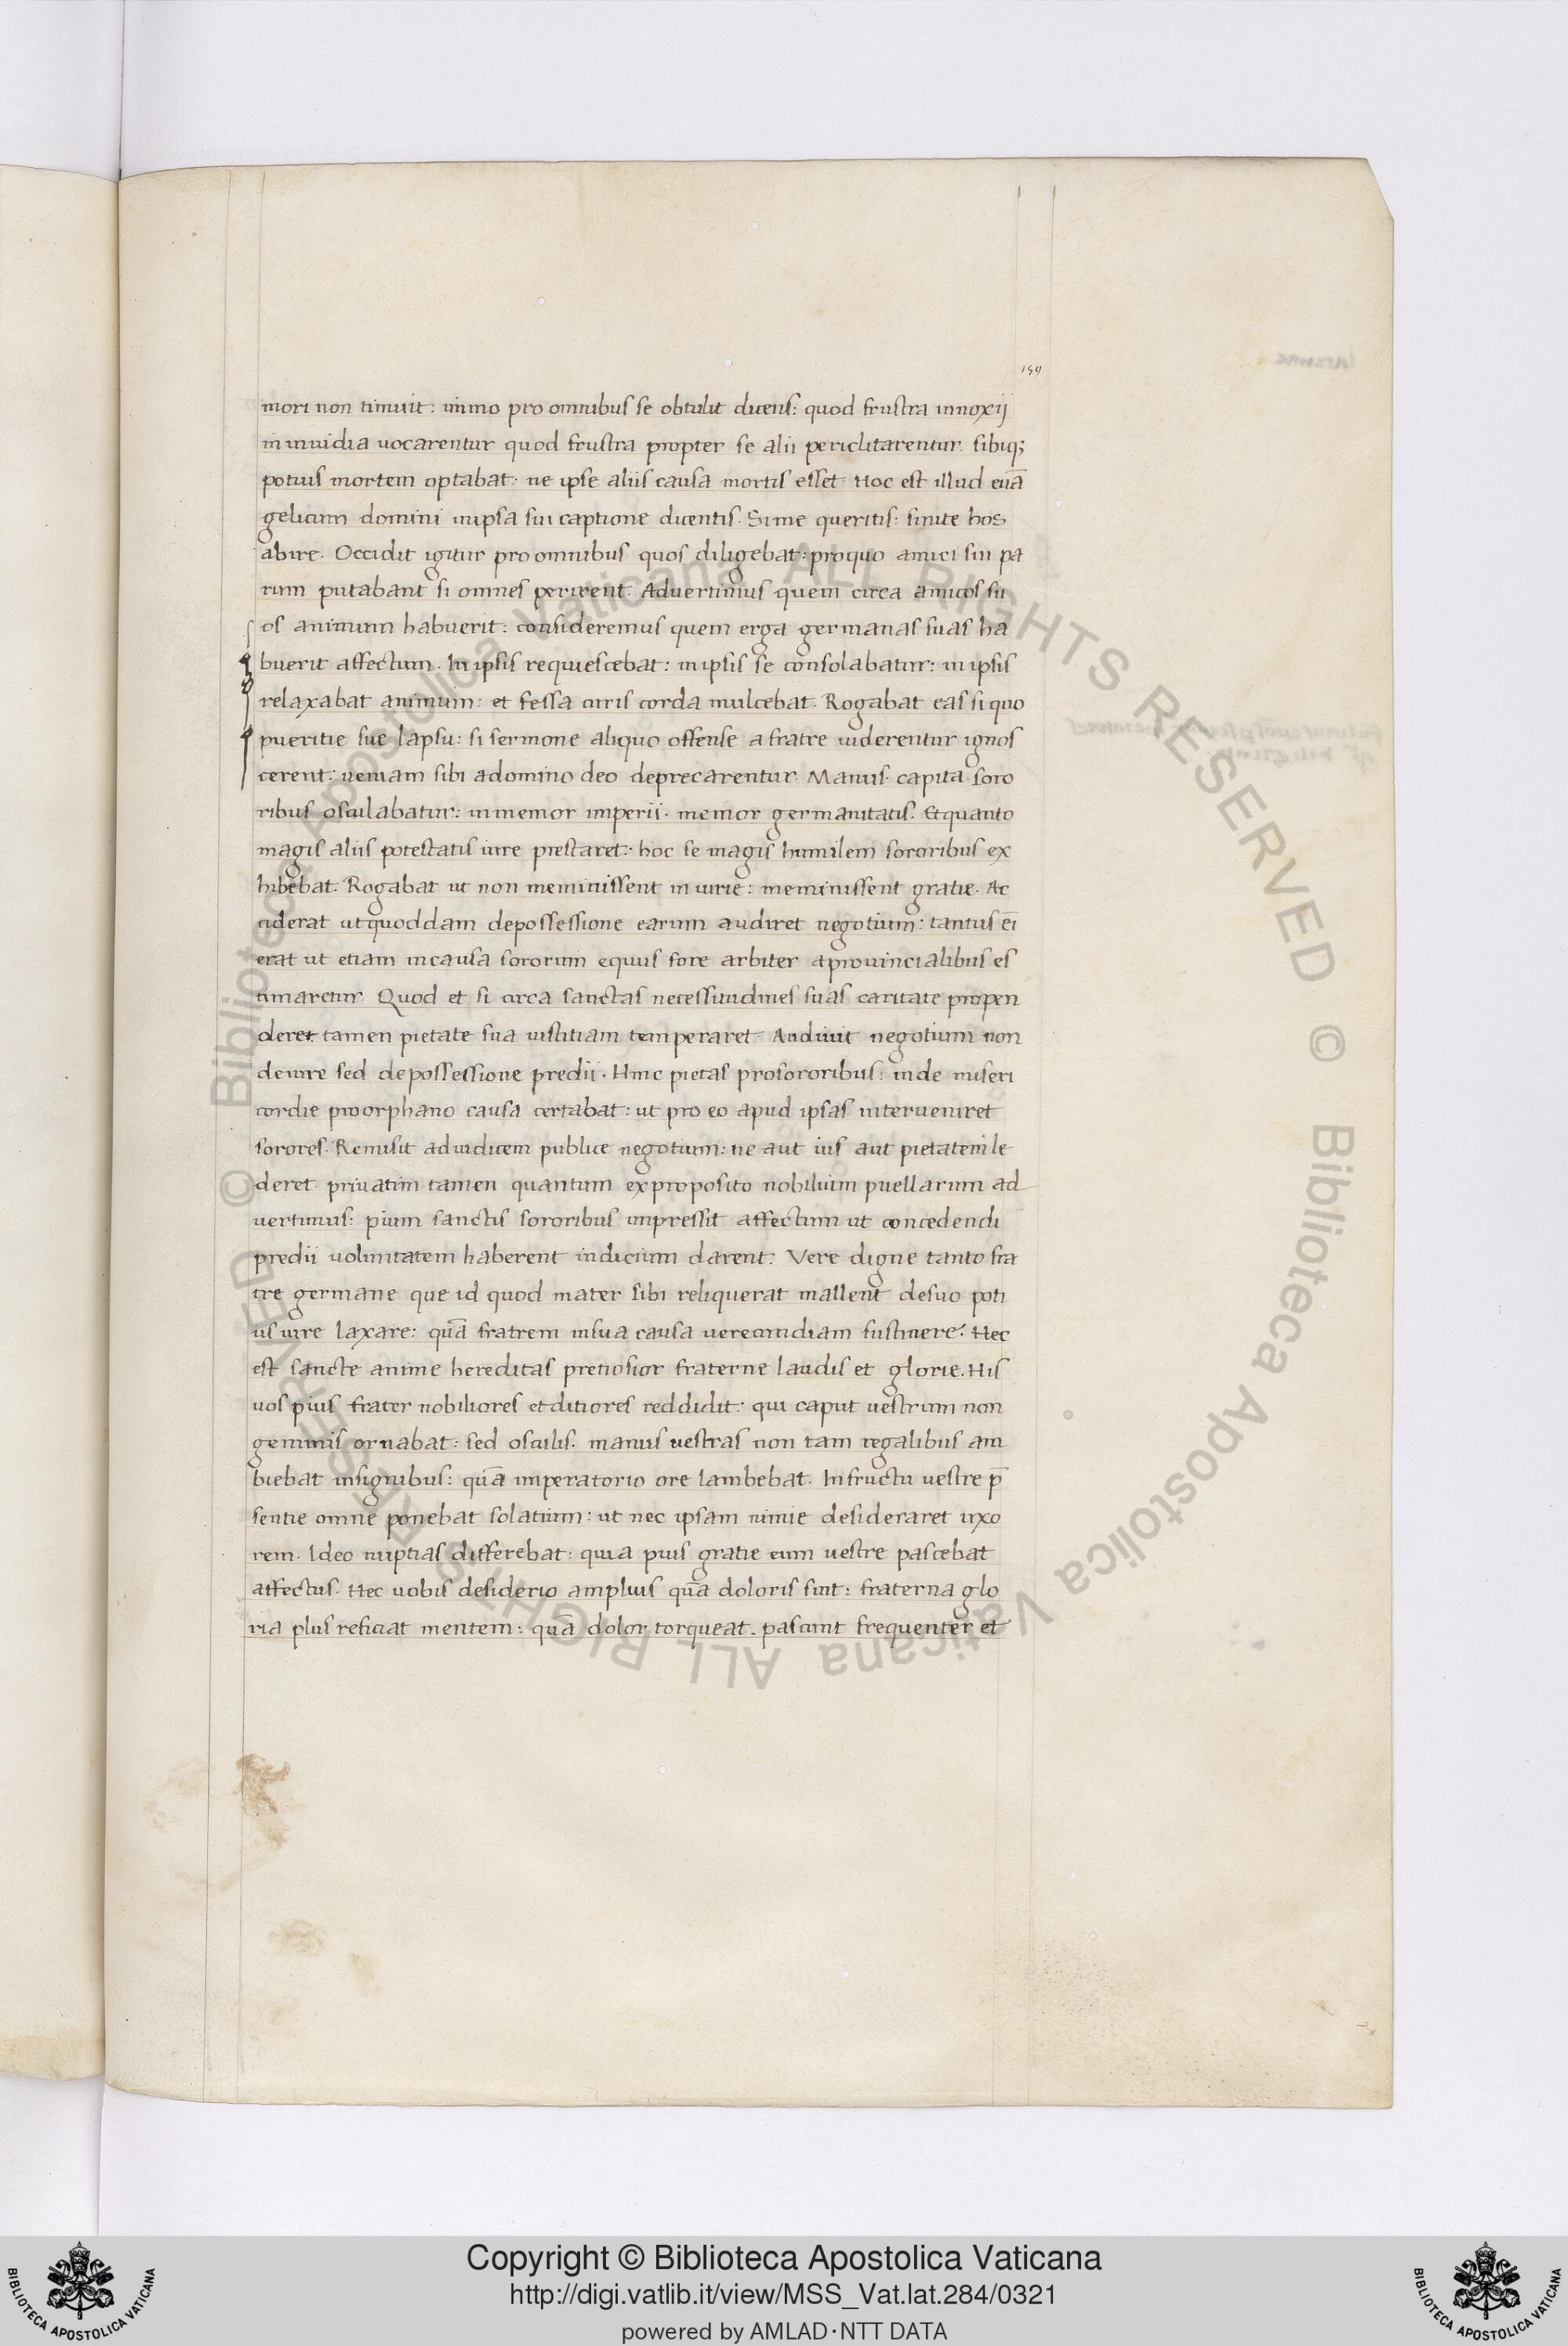 159
mori non timuit: immo pro omnibus se obtulit dicens: quod frustra innoxij
in inuidia uocarentur quod frustra propter se alii periclitarentur. sibiq;
potius mortem optabat. ne ipse aliis causa mortis esset. Hoc est illud euā
gelicum domini inipsa sui captione dicentis. Sime queritis: sinite hos
abire. Occidit igitur pro omnibus quos diligebat: pro quo amici sui pa
rum putabant si omnes perirent. Advertimus quem circa amicos su
os animum habuerit: consideremus quem erga germanas suas ha
buerit affectum. In ipsis requiescebat: in ipsis se consolabatur: in ipsis
relaxabat animum: et fessa curis corda mulcebat. Rogabat eas si quo
pueritie sue lapsu: si sermone aliquo offense a fratre uiderentur ignos
cerent: ueniam sibi adomino deo deprecarentur. Manus. capita soro
ribus osculabatur: inmemor imperii. memor germanitatis. Et quanto
magis aliis potestatis iure prestaret: hoc se magis humilem sororibus ex
hibebat. Rogabat ut non meminissent iniurie: meminissent gratie. Ac
ciderat ut quoddam depossessione earum audiret negotium: tantus ei
erat ut etiam incausa sororum equus fore arbiter aprouincialibus es
timaretur. Quod et si circa sanctas necessitudines suas caritate propen
deret tamen pietate sua iustitiam temperaret. Audiuit negotium non
deiure sed depossessione predii. Hinc pietas prosororibus: inde miseri
cordie proorphano causa certabat: ut pro eo apud ipsas interueniret
sorores. Remisit adiudicem publice negotium: ne aut ius aut pietatem le
deret. priuatim tamen quantum exproposito nobilium puellarum ad
uertimus: pium sanctis sororibus impressit affectum ut concedendi
predii uoluntatem haberent indicium darent. Vere digne tanto fra
tre germane que id quod mater sibi reliquerat mallent desuo poti
us iure laxare: quā fratrem insua causa uerecundiam sustinere. Hec
est sancte anime hereditas pretiosior fraterne laudis et glorie. His
uos pius frater nobiliores et ditiores reddidit: qui caput uestrum non
gemmis ornabat: sed osculis. manus uestras non tam regalibus am
biebat insignibus: quā imperatorio ore lambebat. In fructu uestre p̄
sentie omne ponebat solatium: ut nec ipsam nimie desideraret uxo
rem. Ideo nuptias differebat: quia pius gratie eum uestre pascebat
affectus. Hec uobis desiderio amplius quā doloris sint: fraterna glo
ria plus reficiat mentem: quā dolor torqueat. pascunt frequenter et
© Biblioteca Apostolica Vaticana ALL RIGHTS RESERVED © Biblioteca Apostolica Vaticana ALL RIGHTS RESERVED
Copyright © Biblioteca Apostolica Vaticana
http://digi.vatlib.it/view/MSS_Vat.lat.284/0321
powered by AMLAD·NTT DATA
BIBLIOTECA APOSTOLICA VATICANA
BIBLIOTECA APOSTOLICA VATICANA